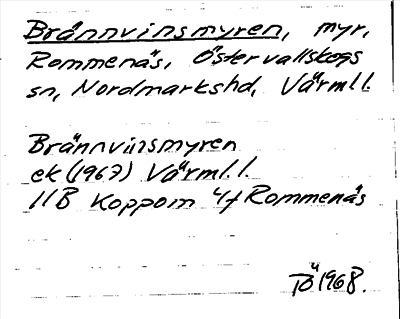 Brännvinsmyren, myr,
Rommenäs, Östervallskogs
sn, Nordmarkshd, Värml.l.
Brännvinsmyren
ek (1967) Värml.l.
11B Koppom 4f Rommenäs
1968.